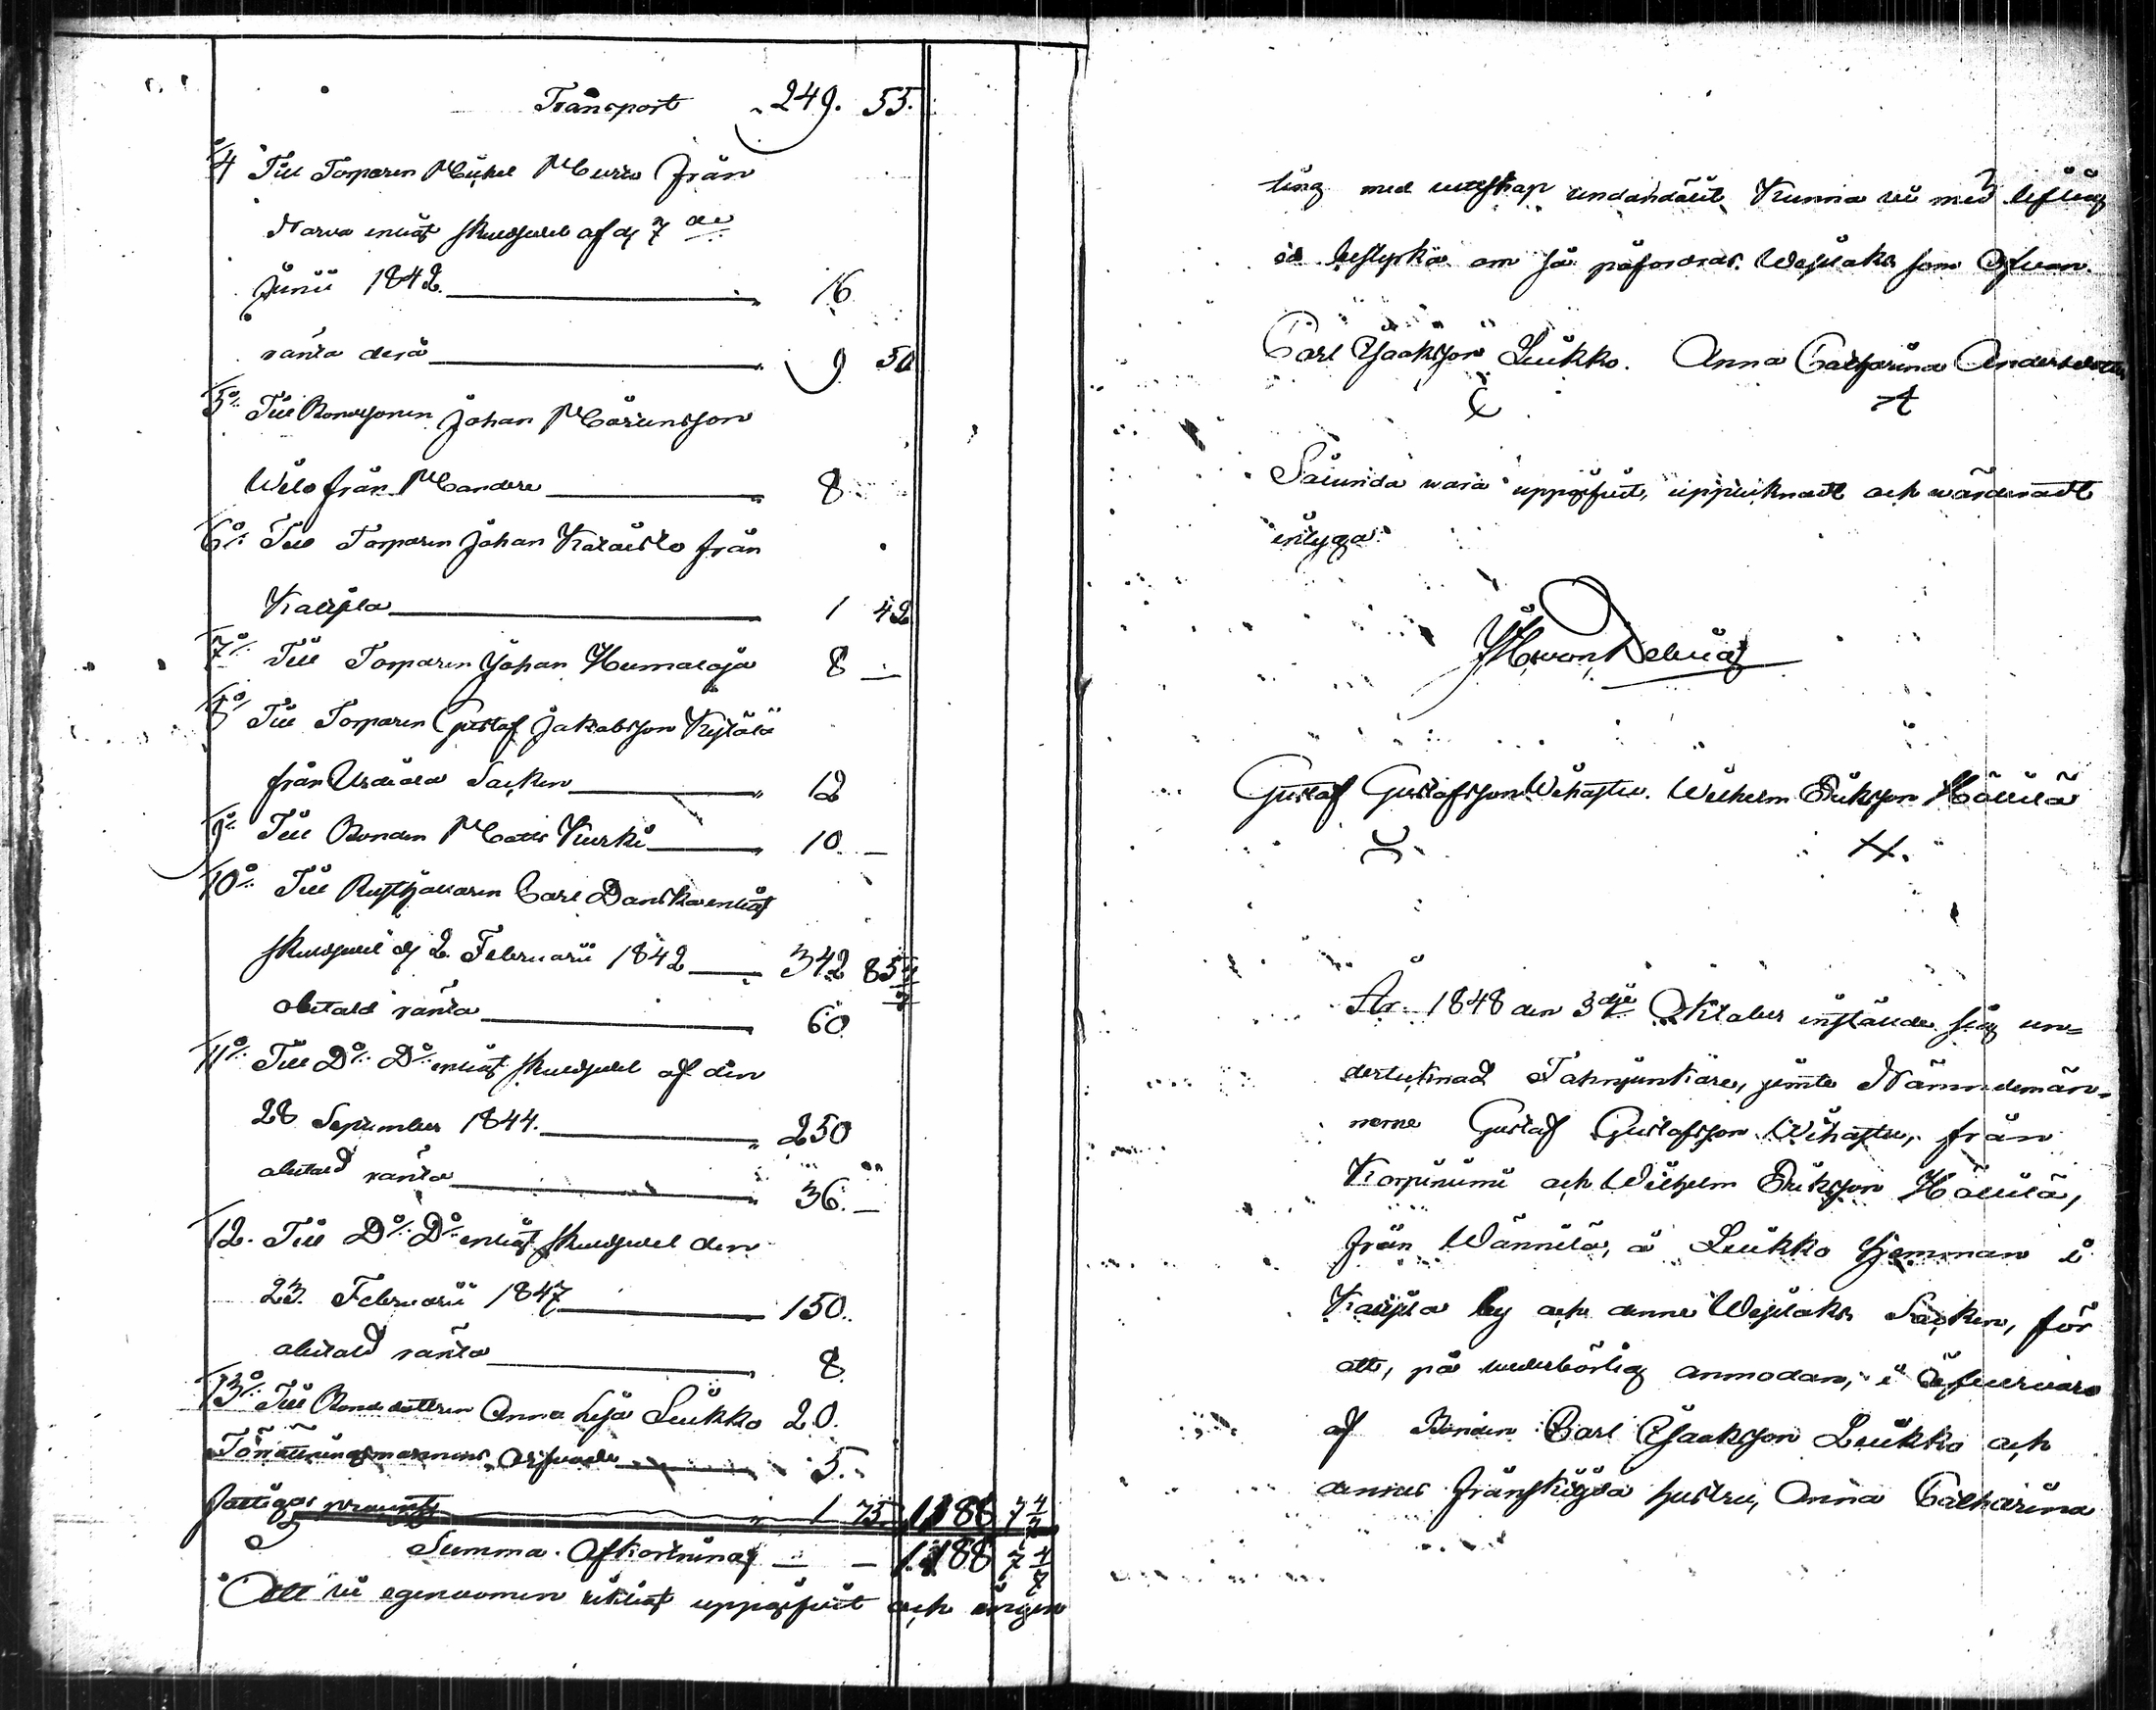 Transport 249. 55.
4 Till Torparen Michel Murro från
Narva enligt skuldsedel af d 7 de
Junii 1842 16
ränta derå 9 50
5º Till Bondesonen Johan Mårtensson
Wilo från Mandere 8
6º Till Torparen Johan Karaisto från
Kaupila 1 42
7º Till Torparen Johan Humaloja 8 —
8º Till Torparen Gustaf Jakobsson Kylälä
från Urdiala Socken 12
9º Till Bonden Matts Kurki 10 —
10º Till Rusthållaren Carl Danska enligt
skuldsedel d 2 Februarii 1842 342 85 4/7
obetald ränta 60
11º Till Dº Dº enligt skuldsedel af den
28 September 1844. 250
obetald ränta 36. —
12. Till Dº Dº enligt skuldsedel den
23 Februarii 1847 150.
obetald ränta 8
13º Till Bondedottren Anna Lisa Leikko 20.
Förrättningsmannens Arfvode 5.
fattigas procent 1 75. 1,188 7 4/7
Summa Afkortning — — 1,188 7 4/7
Att vi egenomen riktigt uppgifvit och ingen
ting med uppsåt undandöllt kunna vi med liflig
ed bestyrka om så påfordras. Wesilaks som ofvan.
Carl Isaksson Leikko. Anna Catharina Andersdotter
A
Sålunda vara uppgifvit, upptecknadt och värderadt
intyga
Gustaf Gustafsson Wihattu. Wilhelm Eriksson Hollila
År 1848 den 3dje Oktober instälde sig un=
dertecknad Fahnjunkare, jemte Nämndemän-
nerne Gustaf Gustafsson Wihattu, från
Korpiniemi och Wilhelm Eriksson Hollila,
från Wännilä, å Leikko hemman i
Kaupila by och denne Wesilaks Socken, för
att, på vederbörlig anmodan, i öfvervaro
af Bonden Carl Isaksson Leikko och
dennes frånskiljda hustru, Anna Catharina